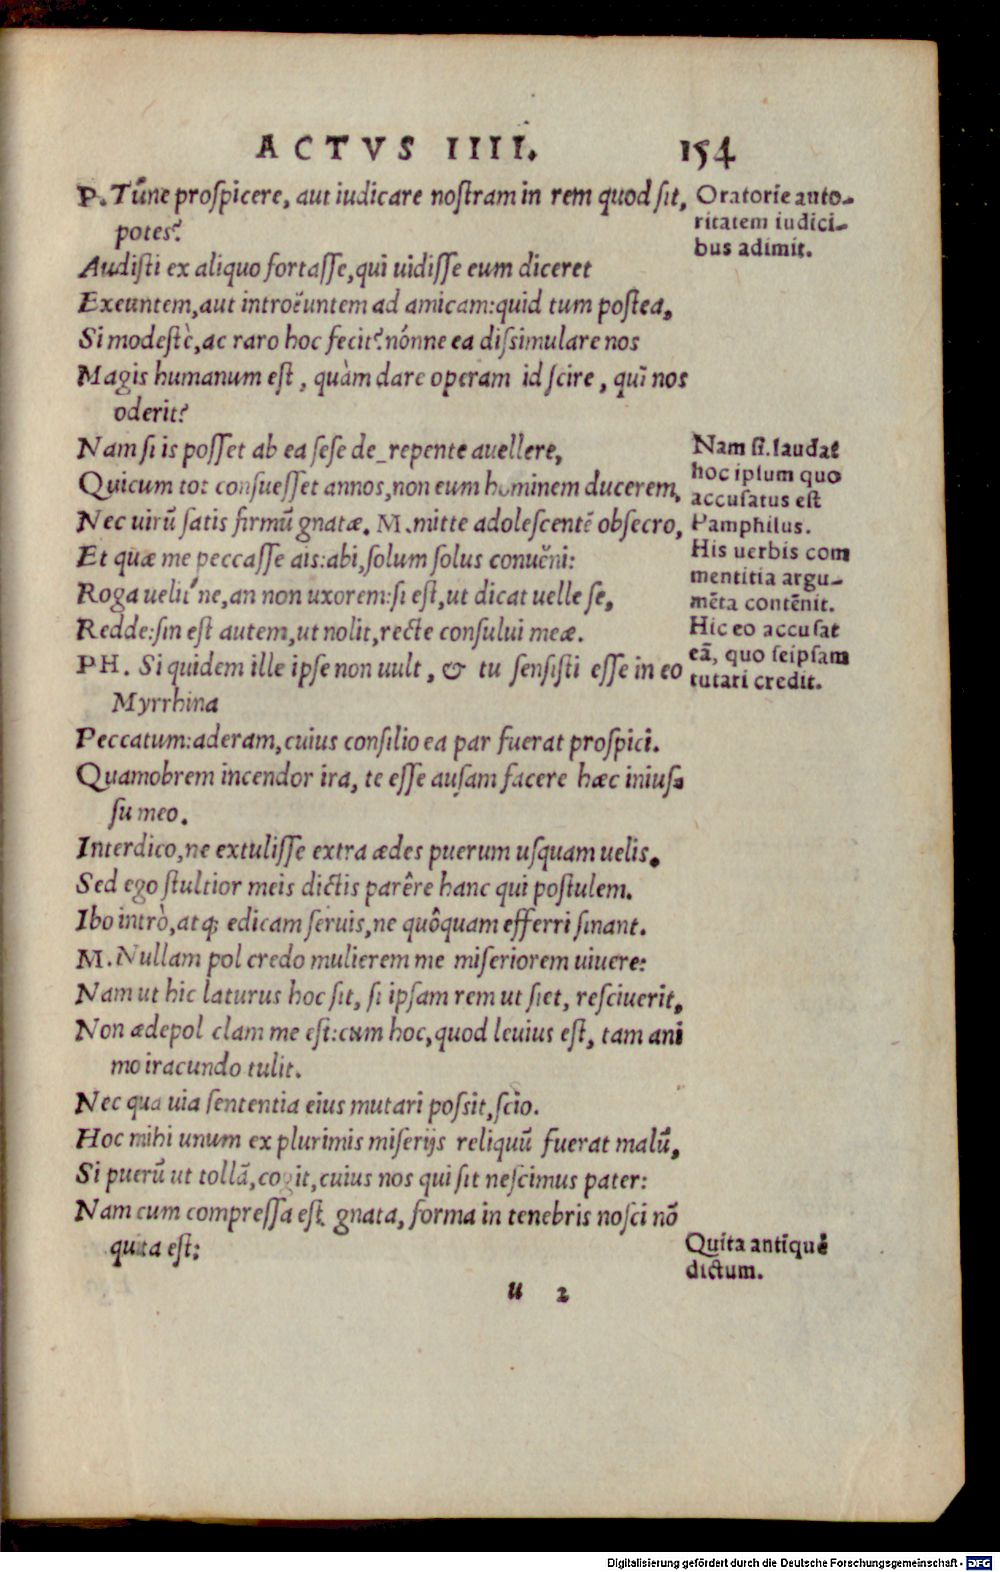 ACTVS IIII. 154
P. Tũne proſpicere, aut iudicare noſtram in rem quod ſit,
potes?
Audiſti ex aliquo fortaſſe, qui uidiſſe eum diceret
Exeuntem, aut introëuntem ad amicam: quid tum poſtea,
Si modeſtè, ac raro hoc fecit? nónne ea diſsimulare nos
Magis humanum eſt, quàm dare operam id ſcire, qui nos
oderit?
Nam ſi is poſſet ab ea ſeſe de_repente auellere,
Quicum tot conſueſſet annos, non eum hominem ducerem,
Nec uirũ ſatis firmũ gnatæ. M. mitte adoleſcentẽ obſecro,
Et quæ me peccaſſe ais: abi, ſolum ſolus conuẽni:
Roga uelit'ne, an non uxorem: ſi eſt, ut dicat uelle ſe,
Redde: ſin eſt autem, ut nolit, recte conſului meæ.
PH. Si quidem ille ipſe non uult, & tu ſenſiſti eſſe in eo
Myrrhina
Peccatum: aderam, cuius conſilio ea par fuerat proſpici.
Quamobrem incendor ira, te eſſe auſam facere hæc iniuſ-
ſu meo.
Interdico, ne extuliſſe extra ædes puerum uſquam uelis.
Sed ego ſtultior meis dictis parêre hanc qui poſtulem.
Ibo intrò, atq; edicam ſeruis, ne quôquam efferri ſinant.
M. Nullam pol credo mulierem me miſeriorem uiuere:
Nam ut hic laturus hoc ſit, ſi ipſam rem ut ſiet, reſciuerit,
Non ædepol clam me eſt: cum hoc, quod leuius eſt, tam ani
mo iracundo tulit.
Nec qua uia ſententia eius mutari poſsit, ſcio.
Hoc mihi unum ex plurimis miſerijs reliquũ fuerat malũ,
Si puerũ ut tollã, cogit, cuius nos qui ſit neſcimus pater:
Nam cum compreſſa eſt gnata, forma in tenebris noſci nõ
quita eſt:
u 2
Oratorie auto-
ritatem iudici-
bus adimit.
Nam ſi. laudat
hoc ipſum quo
accuſatus eſt
Pamphilus.
His uerbis com
mentitia argu-
mẽta contẽnit.
Hic eo accuſat
eã, quo ſeipſam
tutari credit.
Quita antique
dictum.
Digitalisierung gefördert durch die Deutsche Forschungsgemeinschaft - DFG